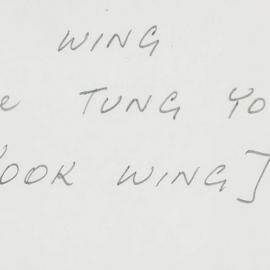 WING
e TUNG YO
OOK WING]